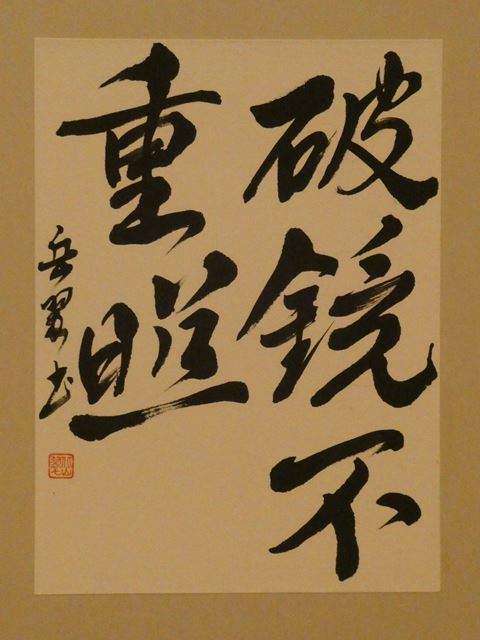 破鏡不
重照
岳翠書